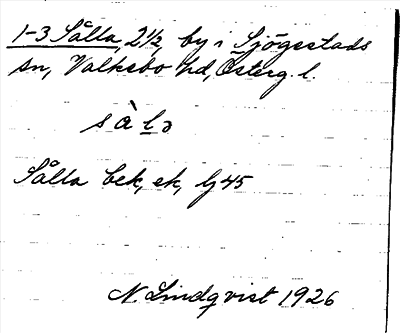 1-3 Sålla, 2 1/2, by i Sjögestads
sn, Valkebo hd, Österg. l.
sàlə
Sålla bck, ek, lj 45
N. Lindqvist 1926